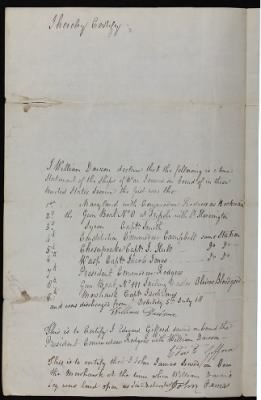 I hereby Certify
I William Dawson declare that the following is a true
Statement of the Ships of War I served on board of in these
United States Service the first was the
1st Maryland with Commodore Rodgers as Boatswain
2d the Gun Boat No 11 at Tripoli with
3d Syren Capt Smith
4 Constitution Commodore Campbell same Station
5 Chesapeake Capt I. Hull do do
6 Wasp Capt Jacob Jones
7th President Commodore Rodgers
8th Gun Boat No Sailing Master Oliver
9th Mohawk Capt Jacob Jones
and was discharged from July 18
William Dawson
This is to Certify I Edward Gifford served on board the
President Commodore Rodgers with William Dawson
Gifford
This is to certify that I John James served on board
the Mohawk at the time when William
leg was
John James